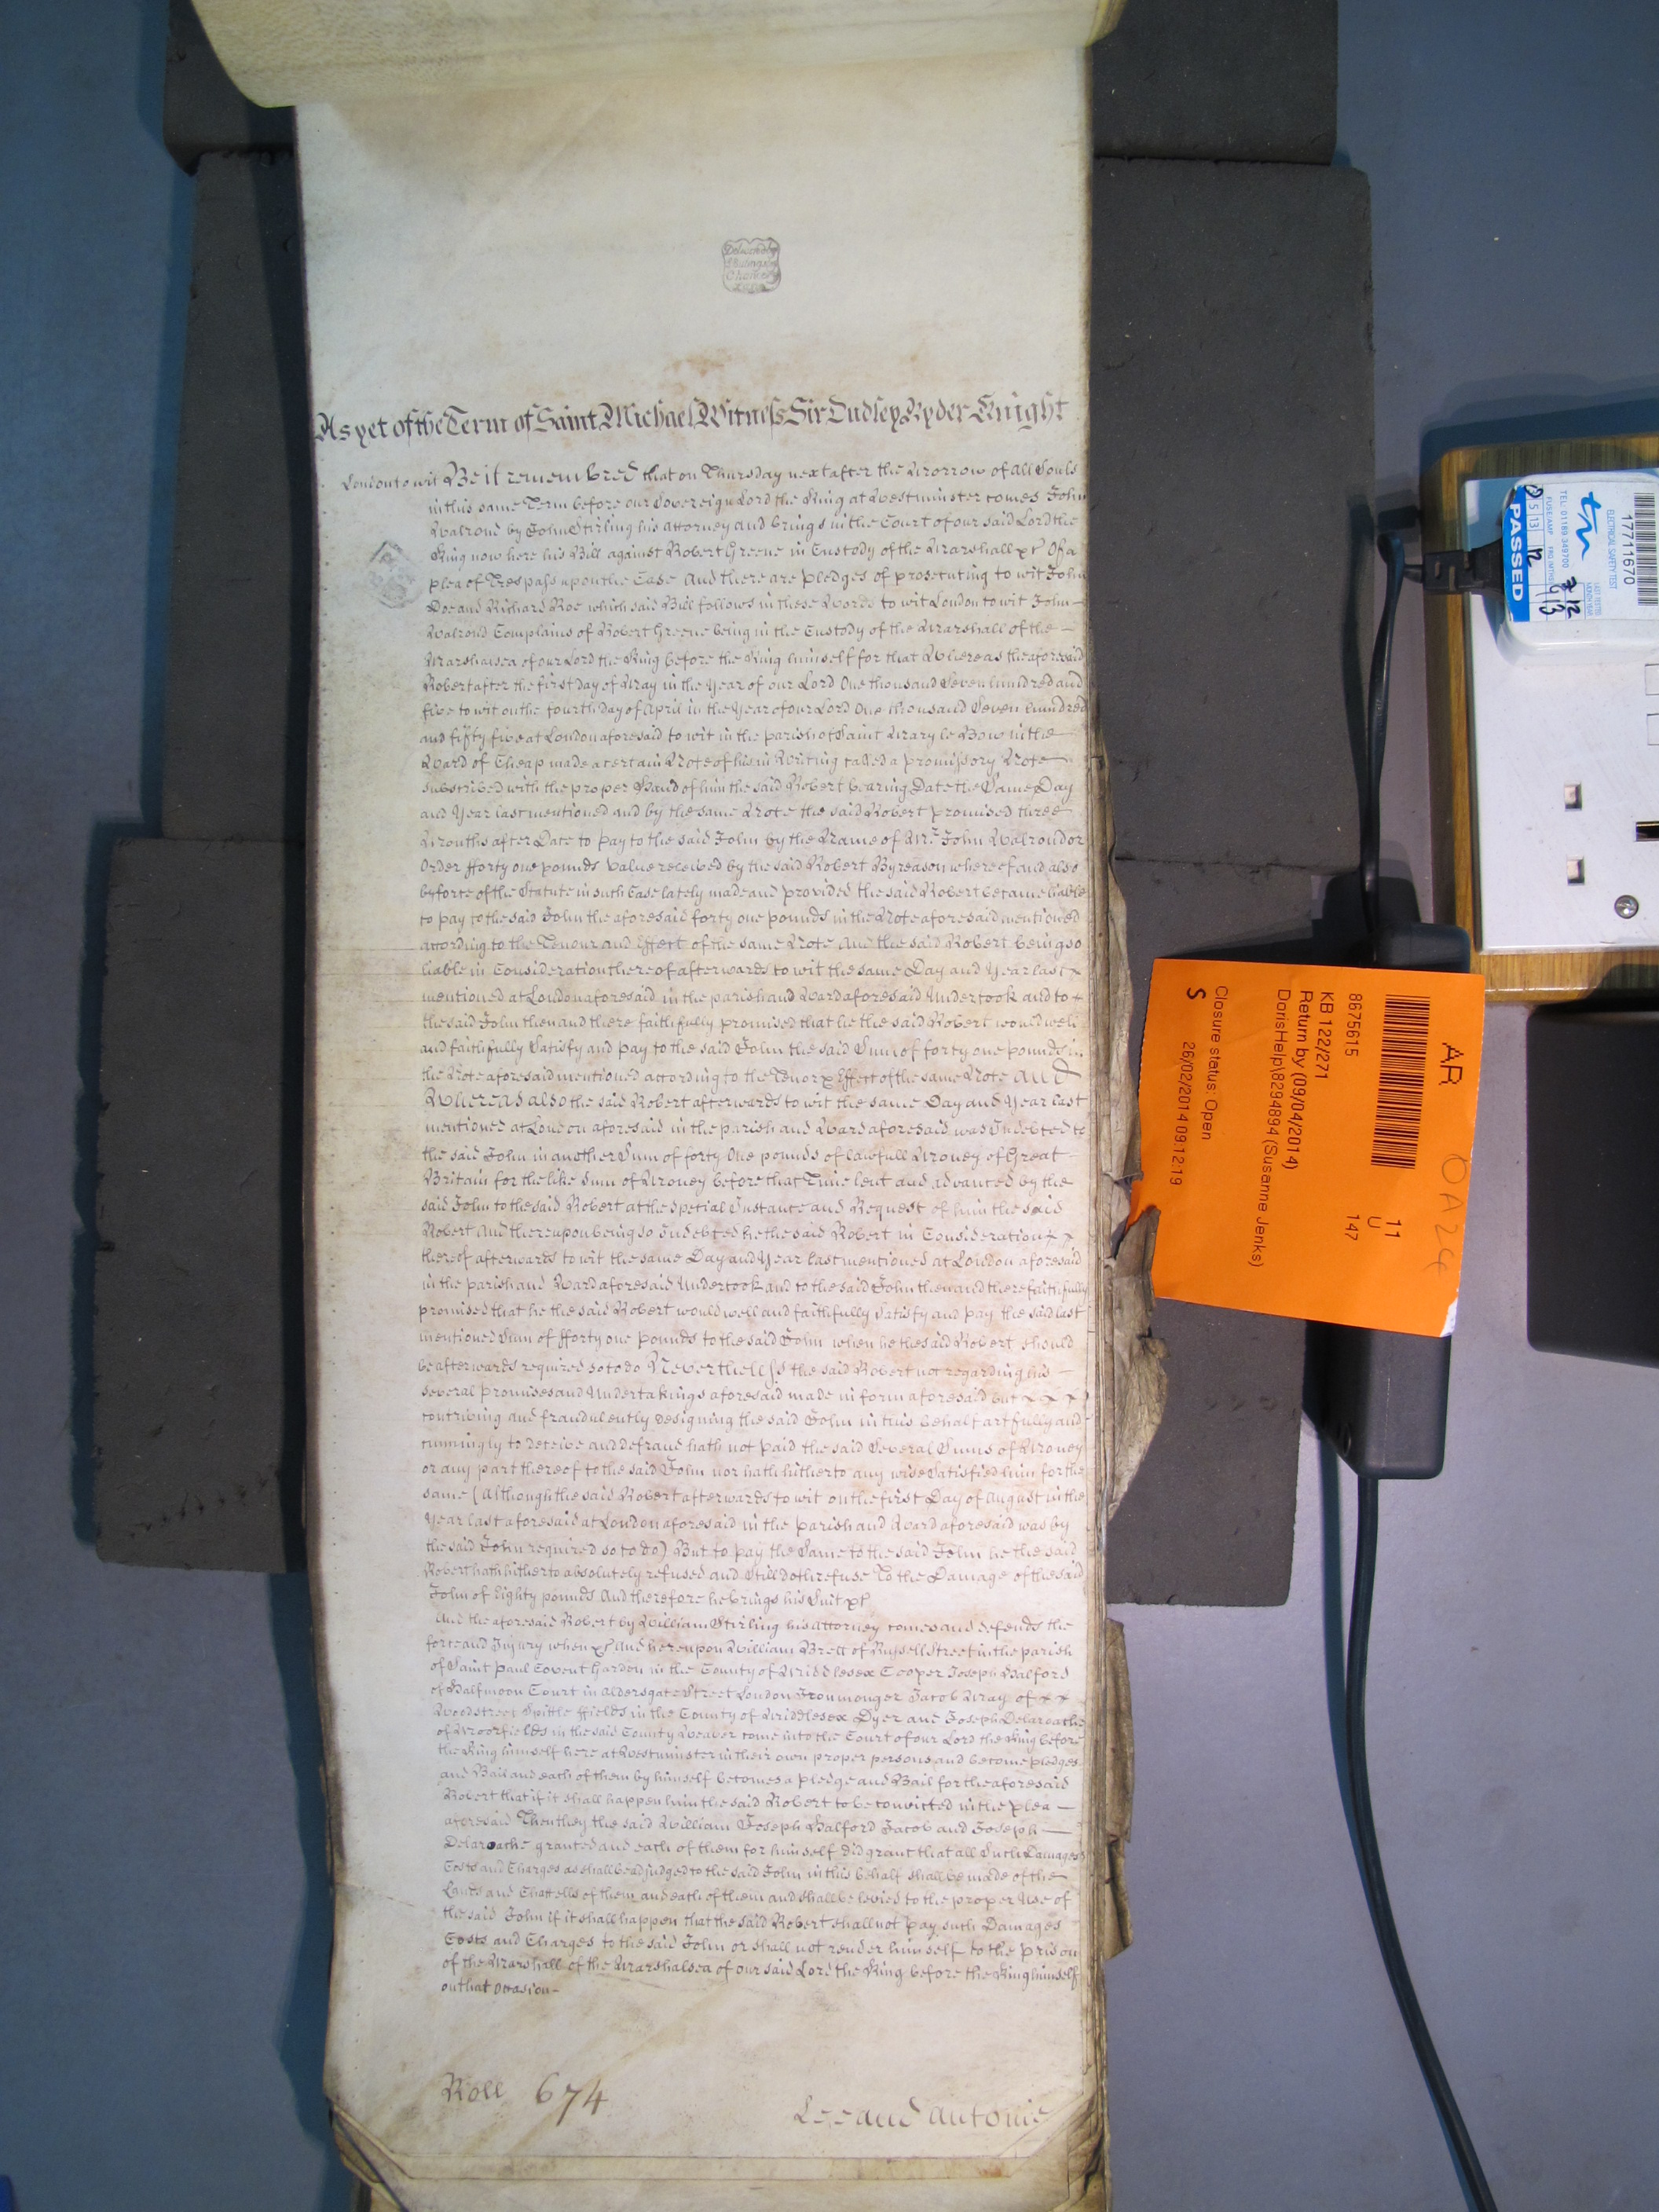 As yet of the Term of Saint Michael Witness Sir Dudley Ryder Knight
London to wit Be it remembred that on Thursday next after the Morrow of all Souls
in this same Term before our Sovereign Lord the King at Westminster comes John
Walrond by John Stirling his attorney and brings in the Court of our said Lord the
King now here his Bill against Robert Greene in Custody of the Marshall &c Of a
plea of Trespass upon the Case And there are pledges of prosecuting to wit John
Doe and Richard Roe which said Bill follows in these Words to wit London to wit John
Walrond Complains of Robert Greene being in the Custody of the Marshall of the
Marshalsea of our Lord the King before the King himself for that Whereas the aforesaid
Robert after the first day of May in the Year of our Lord One thousand Seven hundred and
five to wit on the fourth day of April in the Year of our Lord One thousand Seven hundred
and fifty five at London aforesaid to wit in the parish of Saint Mary le Bow in the
Ward of Cheap made a certain Note of his in Writing called a promissory Note
subscribed with the proper Hand of him the said Robert bearing Date the Same Day
and Year last mentioned and by the same Note the said Robert promised three
Months after Date to pay to the said John by the Name of Mr. John Walrond or
Order fforty one pounds Value received by the said Robert By reason whereof and also
by force of the Statute in such Case lately made and provided the said Robert became liable
to pay to the said John the aforesaid forty one pounds in the Note aforesaid mentioned
according to the Tenour and Effect of the same Note And the said Robert being so
liable in Consideration thereof afterwards to wit the same Day and Year last x
mentioned at London aforesaid in the parish and Ward aforesaid Undertook and to x
the said John then and there faithfully promised that he the said Robert would well
and faithfully Satisfy and pay to the said John the said Sum of forty one pounds in
the Note aforesaid mentioned according to the Tenor & Effect of the same Note And
Whereas also the said Robert afterwards to wit the same Day and Year last
mentioned at London aforesaid in the parish and Ward aforesaid was Indebted to
the said John in another Sum of forty One pounds of lawfull Money of Great
Britain for the like Sum of Money before that Time lent and advanced by the
said John to the said Robert at the Special Instance and Request of him the said
Robert And thereupon being so Indebted he the said Robert in Consideration x x
thereof afterwards to wit the same Day and Year last mentioned at London aforesaid
in the parish and Ward aforesaid Undertook and to the said John then and there faithfully
promised that he the said Robert would well and faithfully Satisfy and pay the said last
mentioned Sum of fforty one pounds to the said John when he the said Robert should
be afterwards required so to do Nevertheless the said Robert not regarding his
several promises and Undertakings aforesaid made in form aforesaid but x x x
contriving and fraudulently designing the said John in this behalf artfully and
cunningly to deceive and defraud hath not paid the said Several Sums of Money
or any part thereof to the said John nor hath hitherto any wise Satisfied him for the
same (Although the said Robert afterwards to wit on the first Day of August in the
Year last aforesaid at London aforesaid in the parish and Ward aforesaid was by
the said John required so to do) But to pay the Same to the said John he the said
Robert hath hitherto absolutely refused and Still doth refuse To the Damage of the said
John of Eighty pounds And therefore he brings his Suit &c
And the aforesaid Robert by William Stirling his Attorney comes and defends the
force and Injury when &c And hereupon William Brell of Russell Street in the parish
of Saint Paul Covent Garden in the County of Middlesex Cooper Joseph Halford
of Halfmoon Court in Aldersgate Street London Ironmonger Jacob May of x x
Woodstreet Spittle ffields in the County of Middlesex Dyer and Joseph Delaroache
of Moorfields in the said County Weaver come into the Court of our Lord the King before
the King himself here at Westminster in their own proper persons and become pledges
and Bail and each of them by himself becomes a pledge and Bail for the aforesaid
Robert that if it shall happen him the said Robert to be convicted in the plea
aforesaid Then they the said William Joseph Halford Jacob and Joseph
Delaroache granted and each of them for himself did grant that all Such Damages
Costs and Charges as shall be adjudged to the said John in this behalf shall be made of the
Lands and Chattells of them and each of them and shall be levied to the proper Use of
the said John if it shall happen that the said Robert shall not pay such Damages
Costs and Charges to the said John or shall not render himself to the prison
of the Marshall of the Marshalsea of our said Lord the King before the King himself
on that Occasion
Roll 674
Lee and Antonie
AR
OA24
11
U
147
8675615
KB 122/271
Return by (09/04/2014)
DorisHelp\8294894 (Susanne Jenks)
Closure status: Open
S 26/02/2014 09:12:19
17711670
ELECTRICAL SAFETY TEST
PASSED